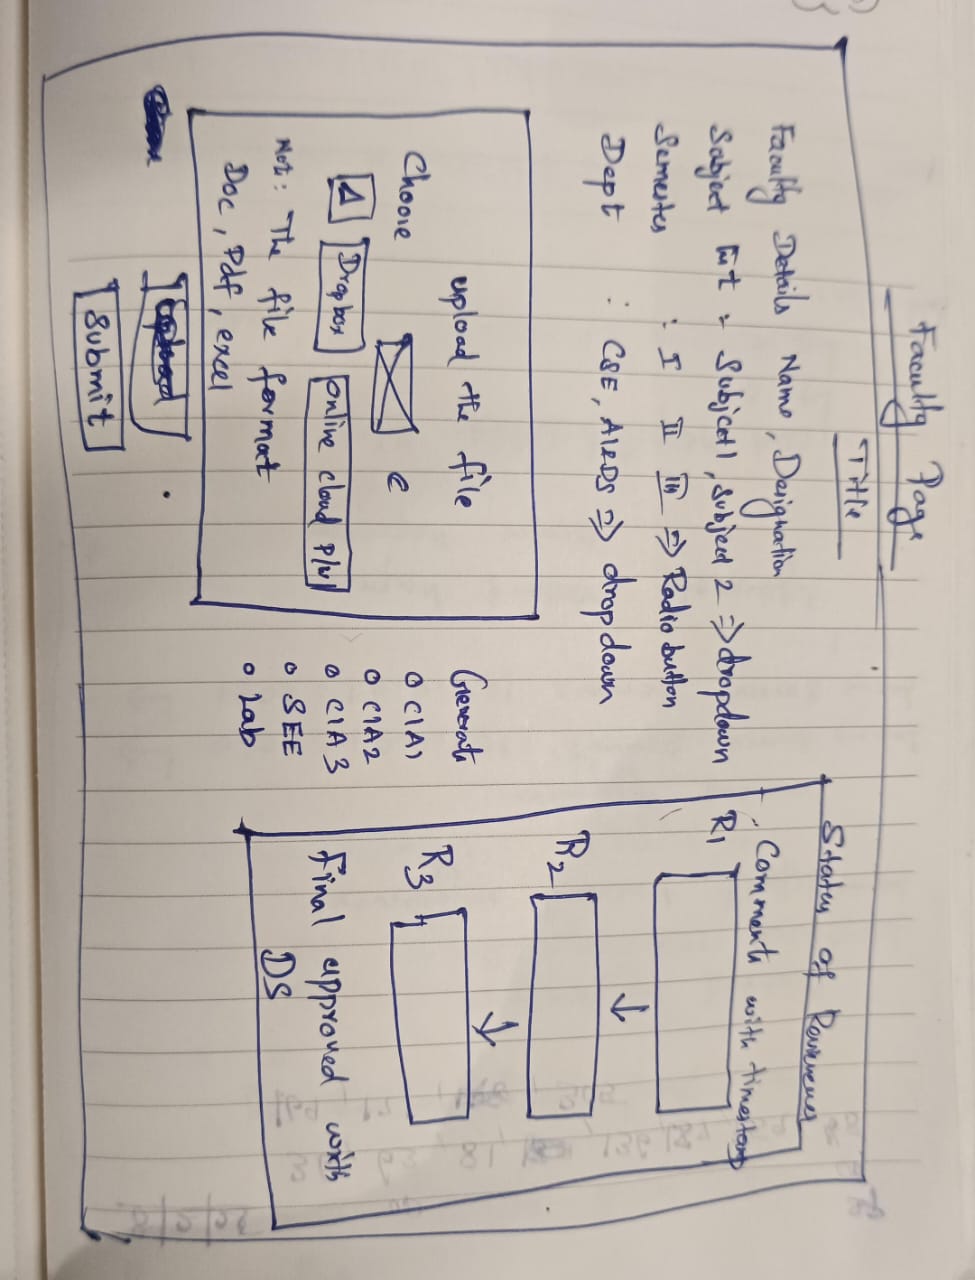 Faculty Page
Title
Faculty Details Name, Designation
Subject List : Subject1, Subject 2 => dropdown
Semester : I II III => Radio button
Dept : CSE, AI&DS => drop down
upload the file
Choose
Dropbox
online cloud
Not: The file format
Doc, Pdf, excel
Submit
Generat
CIA1
CIA2
CIA3
SEE
Lab
Status of
Comments with timestamp
R1
R2
R3
Final approved with
DS